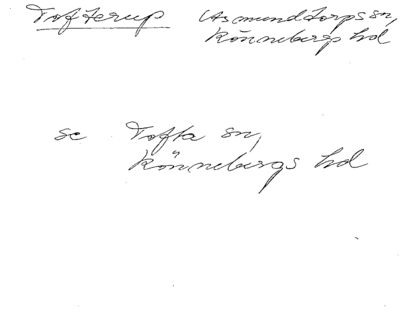 Tofterup Asmundtorps sn,
Rönnebergs hd
se Tofta sn,
Rönnebergs hd